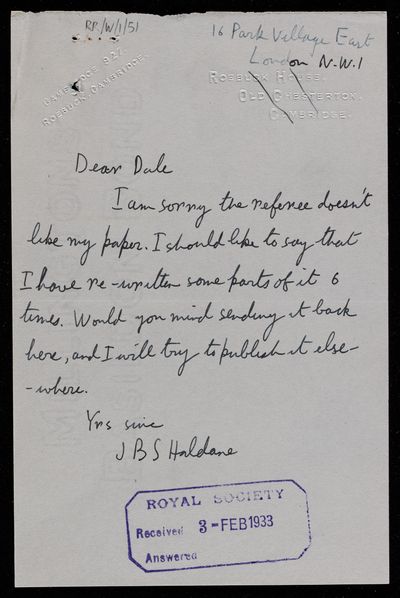 RP/W/1/51
16 Park Village East
London N.W.1
CAMBRIDGE 827.
ROEBUCK, CAMBRIDGE.
ROEBUCK HOUSE,
OLD CHESTERTON,
CAMBRIDGE.
Dear Dale
I am sorry the referee doesn't
like my paper. I should like to say that
I have re-written some parts of it 6
times. Would you mind sending it back
here, and I will try to publish it else-
-where.
Yrs sinc
JBS Haldane
ROYAL SOCIETY
Received 3-FEB 1933
Answered